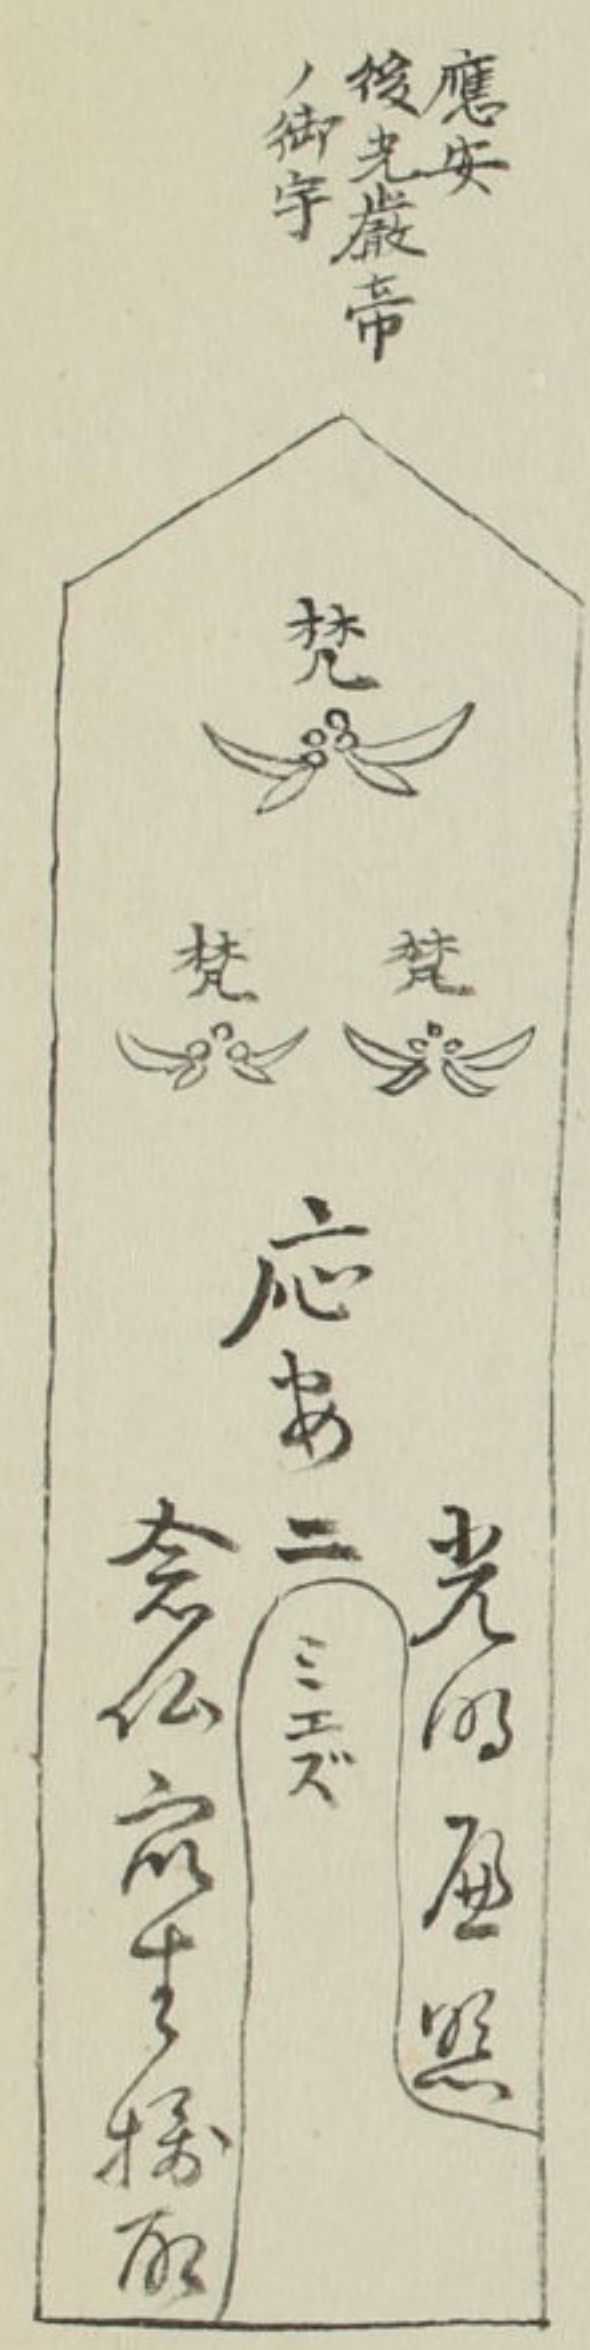 應安
後光嚴帝
ノ御宇
梵
梵
梵
応安二
ミエズ
光明遍照
念仏衆生摂取